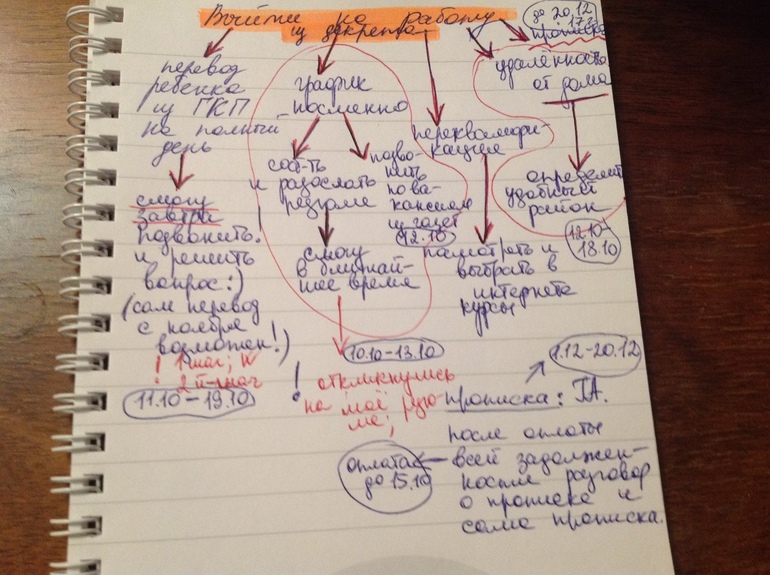 Выйти на работу
из декрета
до 20.12
прописка
перевод
ребенка
из ГКП
на полный
день
смогу
завтра
позвонить
и решить
вопрос:)
(сам перевод
с ноября
возможен!)
! 1 шаг; и
! 2й-шаг
11.10-19.10
график
посменно
сос-ть
и разослать
резюме
смогу
в ближай-
шее время
позво-
нить
по ва-
кансиям
из газет
12.10
10.10-13.10
! откликнулись
на моё резю-
ме;
переквалифи-
кация
посмотреть и
выбрать в
интернете
курсы
удалённость
от дома
определить
удобный
район
12.10-
18.10
1.12-20.12
прописка: Т.А.
после оплаты
всей задолжен-
ности разговор
о прописке и
сама прописка.
оплата
до 15.10